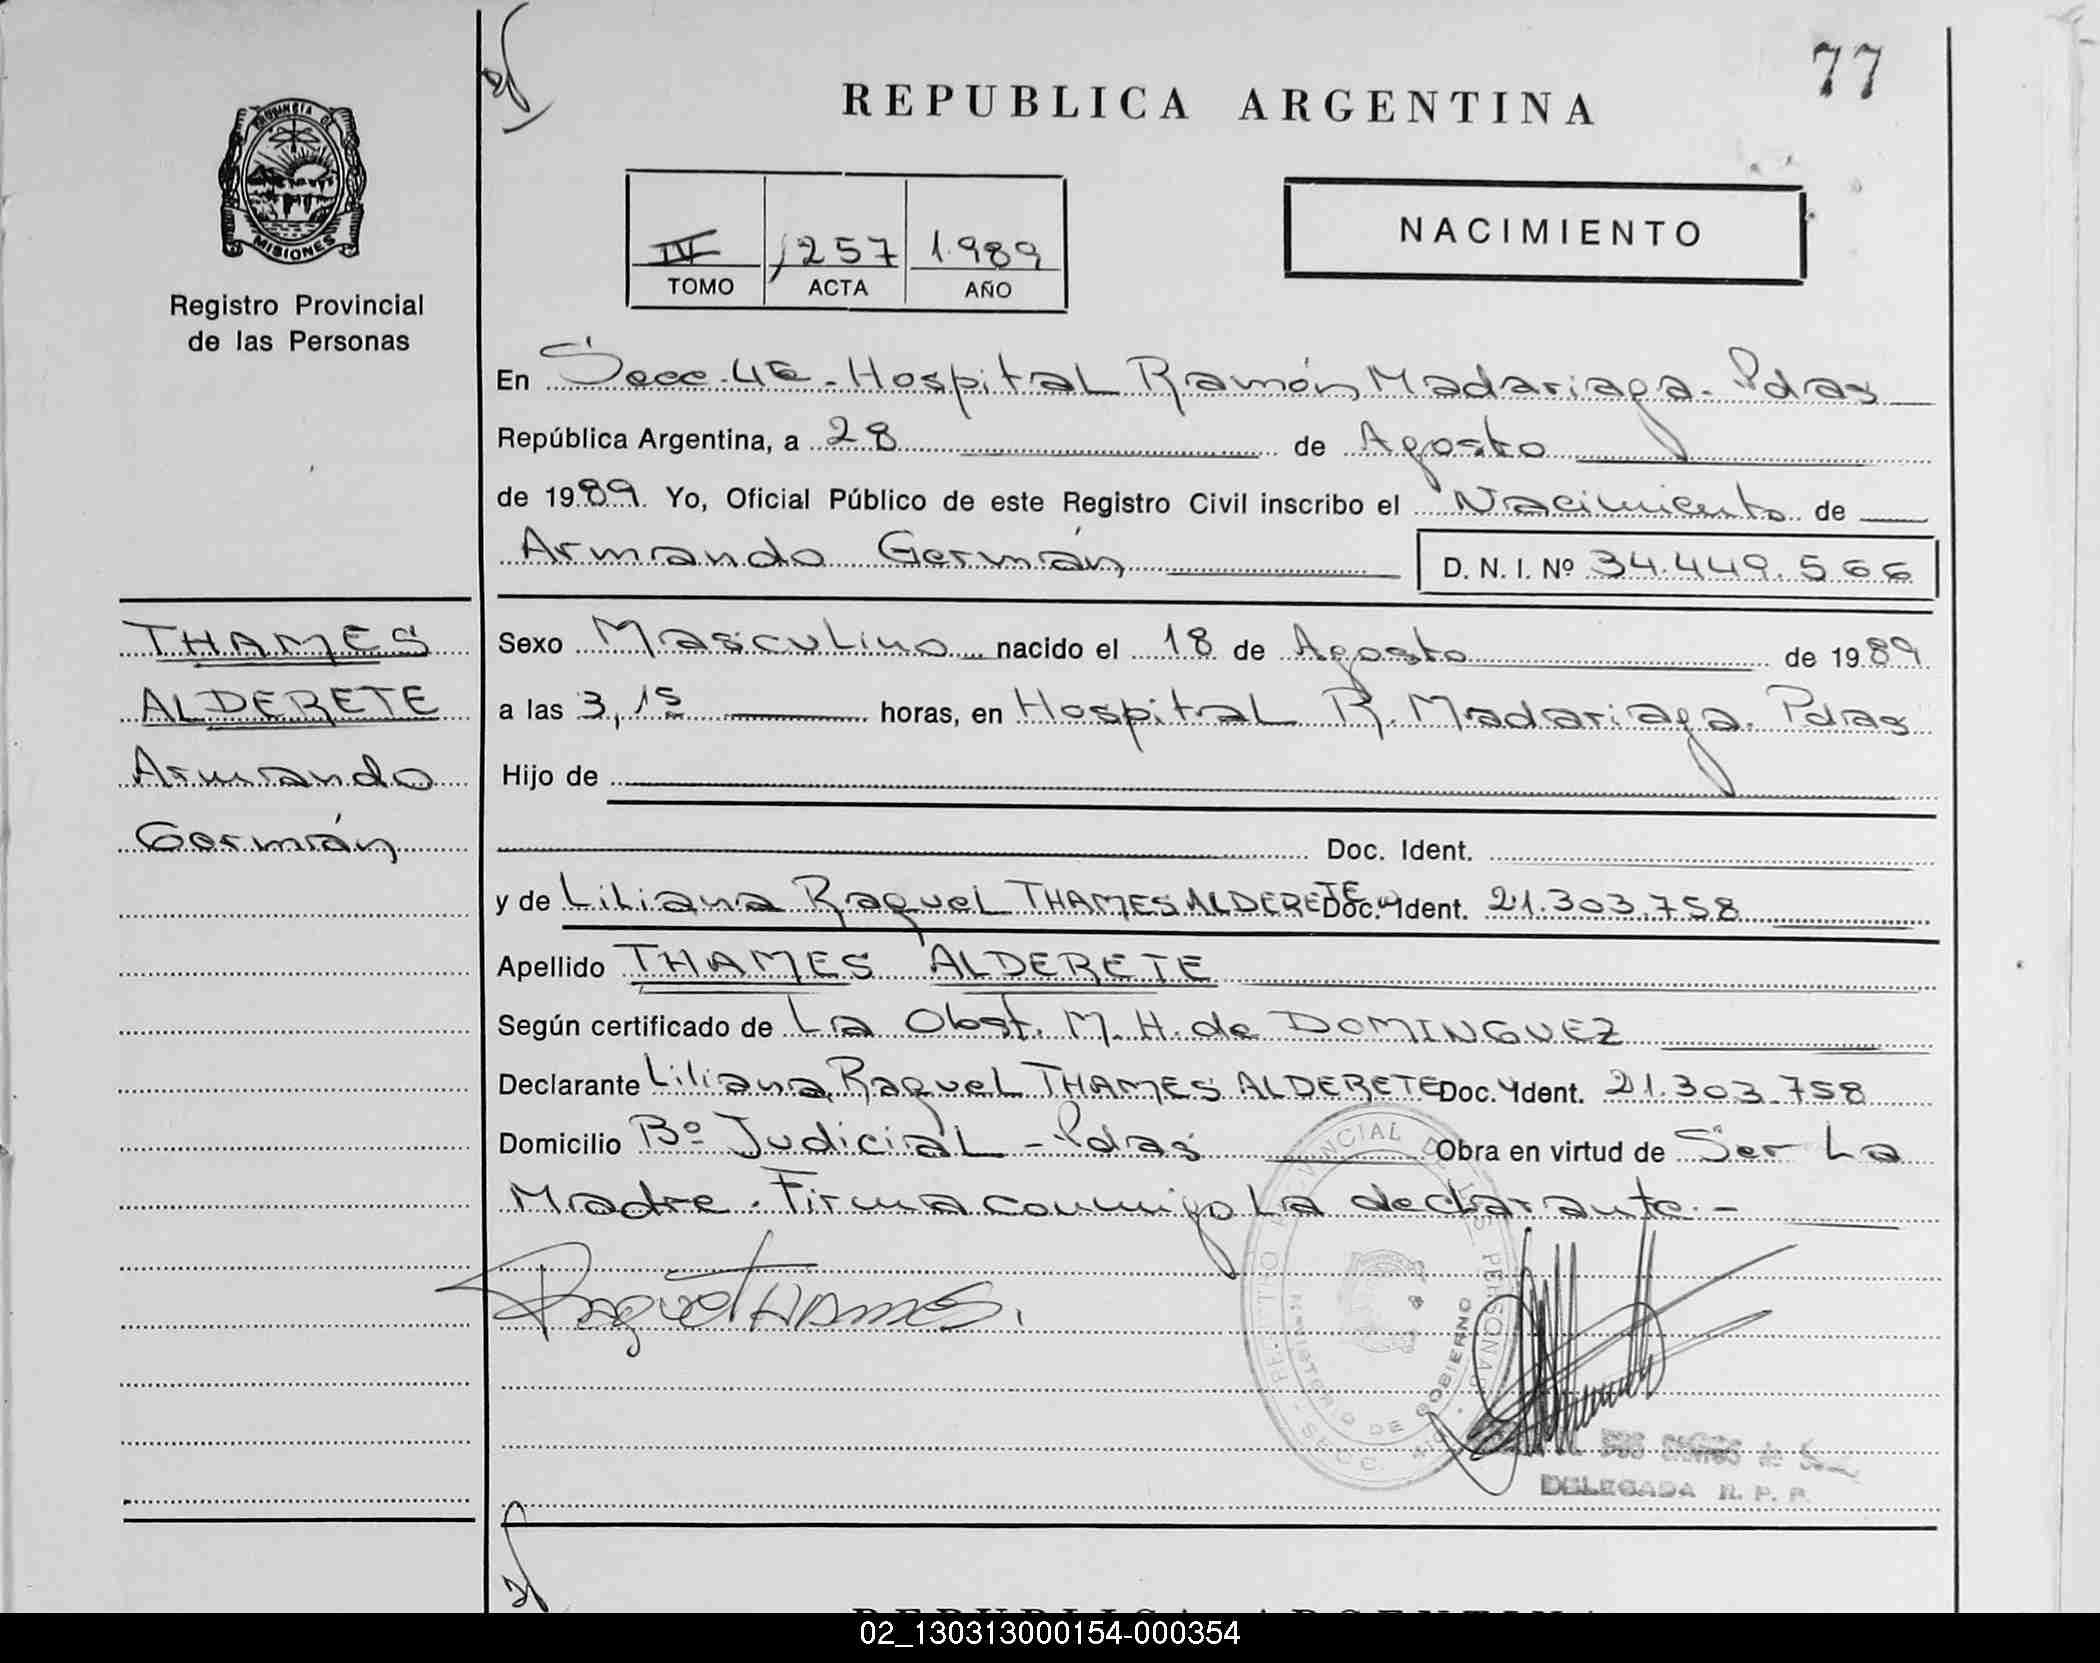 77
REPUBLICA ARGENTINA
PROVINCIA DE
MISIONES
Registro Provincial
de las Personas
IV 1257 1.989
TOMO ACTA AÑO
NACIMIENTO
En Secc. 4ª - Hospital Ramón Madariaga. Pdas
República Argentina, a 28 de Agosto
de 1989. Yo, Oficial Público de este Registro Civil inscribo el Nacimiento de
Armando Germán D. N. I. Nº 34.449.566
THAMES
ALDERETE
Armando
Germán
Sexo Masculino nacido el 18 de Agosto de 1989
a las 3,15 horas, en Hospital R. Madariaga. Pdas
Hijo de
Doc. Ident.
y de Liliana Raquel THAMES ALDERETE Doc. Ident. 21.303.758
Apellido THAMES ALDERETE
Según certificado de La Obst. M. H. de DOMINGUEZ
Declarante Liliana Raquel THAMES ALDERETE Doc. Ident. 21.303.758
Domicilio Bº Judicial - Pdas Obra en virtud de Ser La
Madre. Firma conmigo La declarante.-
Raquel Thames.
REGISTRO PROVINCIAL DE LAS PERSONAS
MINISTERIO DE GOBIERNO
DELEGADA R. P. P.
REPUBLICA ARGENTINA
02_130313000154-000354